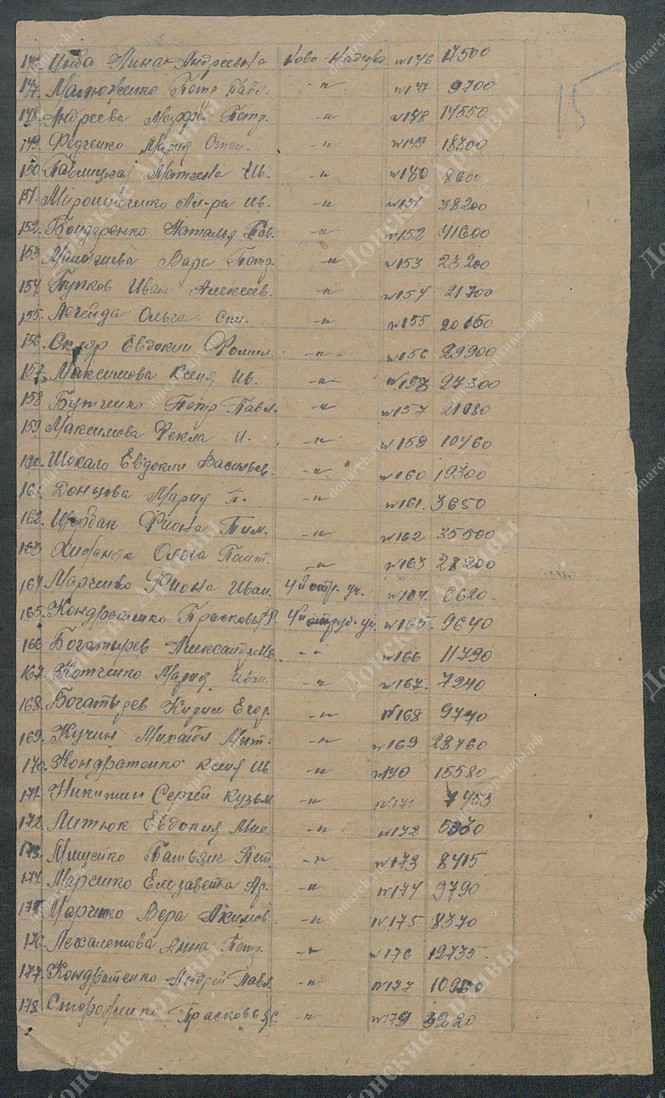 15
146. Анна Андреевна Ново-Надежд. №146 17500
147. Петр Павл. -"- №147 9700
148. Андреева Марфа Петр. -"- №148 14550
149. Федченко Мария Степ. -"- №149 18700
150. Павлицкая Матрена Ив. -"- №150 8600
151. Мирошниченко Ив. -"- №151 38200
152. Бондаренко Наталья Пав. -"- №152 41600
153. Вара Петр. -"- №153 23200
154. Пупков Иван Алексеев. -"- №154 21700
155. Легейда Ольга -"- №155 20150
156. Скляр Евдокия Фомин. -"- №156 29900
157. Максимова Ксения Ив. -"- №158 27300
158 Бутченко Петр Павл. -"- №157 21080
159 Максимова Фекла И. -"- №159 10460
160. Шокало Евдокия Васильев. -"- №160 19300
161. Донцова Мария П. -"- №161. 3650
162. Щербак Фиона Тим. -"- №162 35500
163 Ольга Пант. -"- №163 28200
164 Марченко Фиона Иван. 4й отр. уч. №164. 6620.
165. Кондратенко Прасковья Ф. №165. 9640
166 Богатырев Александр Ив. -"- №166 11790
167. Мария Иван. -"- №167. 7240
168. Богатырев Егор. -"- №168 9740
169. Кучин Михаил Мит. -"- №169 28760
170. Кондратенко Ксения Ив -"- №170 15580
171. Никитин Сергей Кузьм -"- №171 7453
172. Литюк Евдокия -"- №172
173. Мищенко Татьяна Пет. -"- №173 8415
174. Марченко Елизавета Ар. -"- №174 9790
175 Марченко Вера Акимов. -"- №175 8370
176. Анна Петр. -"- №176 12735
177. Кондратенко Андрей Павл. -"- №177 10950
178. Стороженко Прасковья С. -"- №179 3220